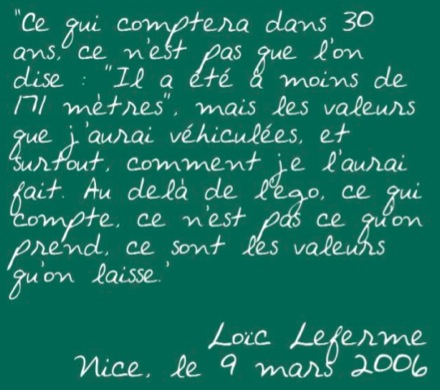 "Ce qui comptera dans 30
ans, ce n'est pas que l'on
dise : "Il a été à moins de
171 mètres", mais les valeurs
que j'aurai véhiculées, et
surtout, comment je l'aurai
fait. Au delà de l'ego, ce qui
compte, ce n'est pas ce qu'on
prend, ce sont les valeurs
qu'on laisse."
Loïc Leferme
Nice, le 9 mars 2006